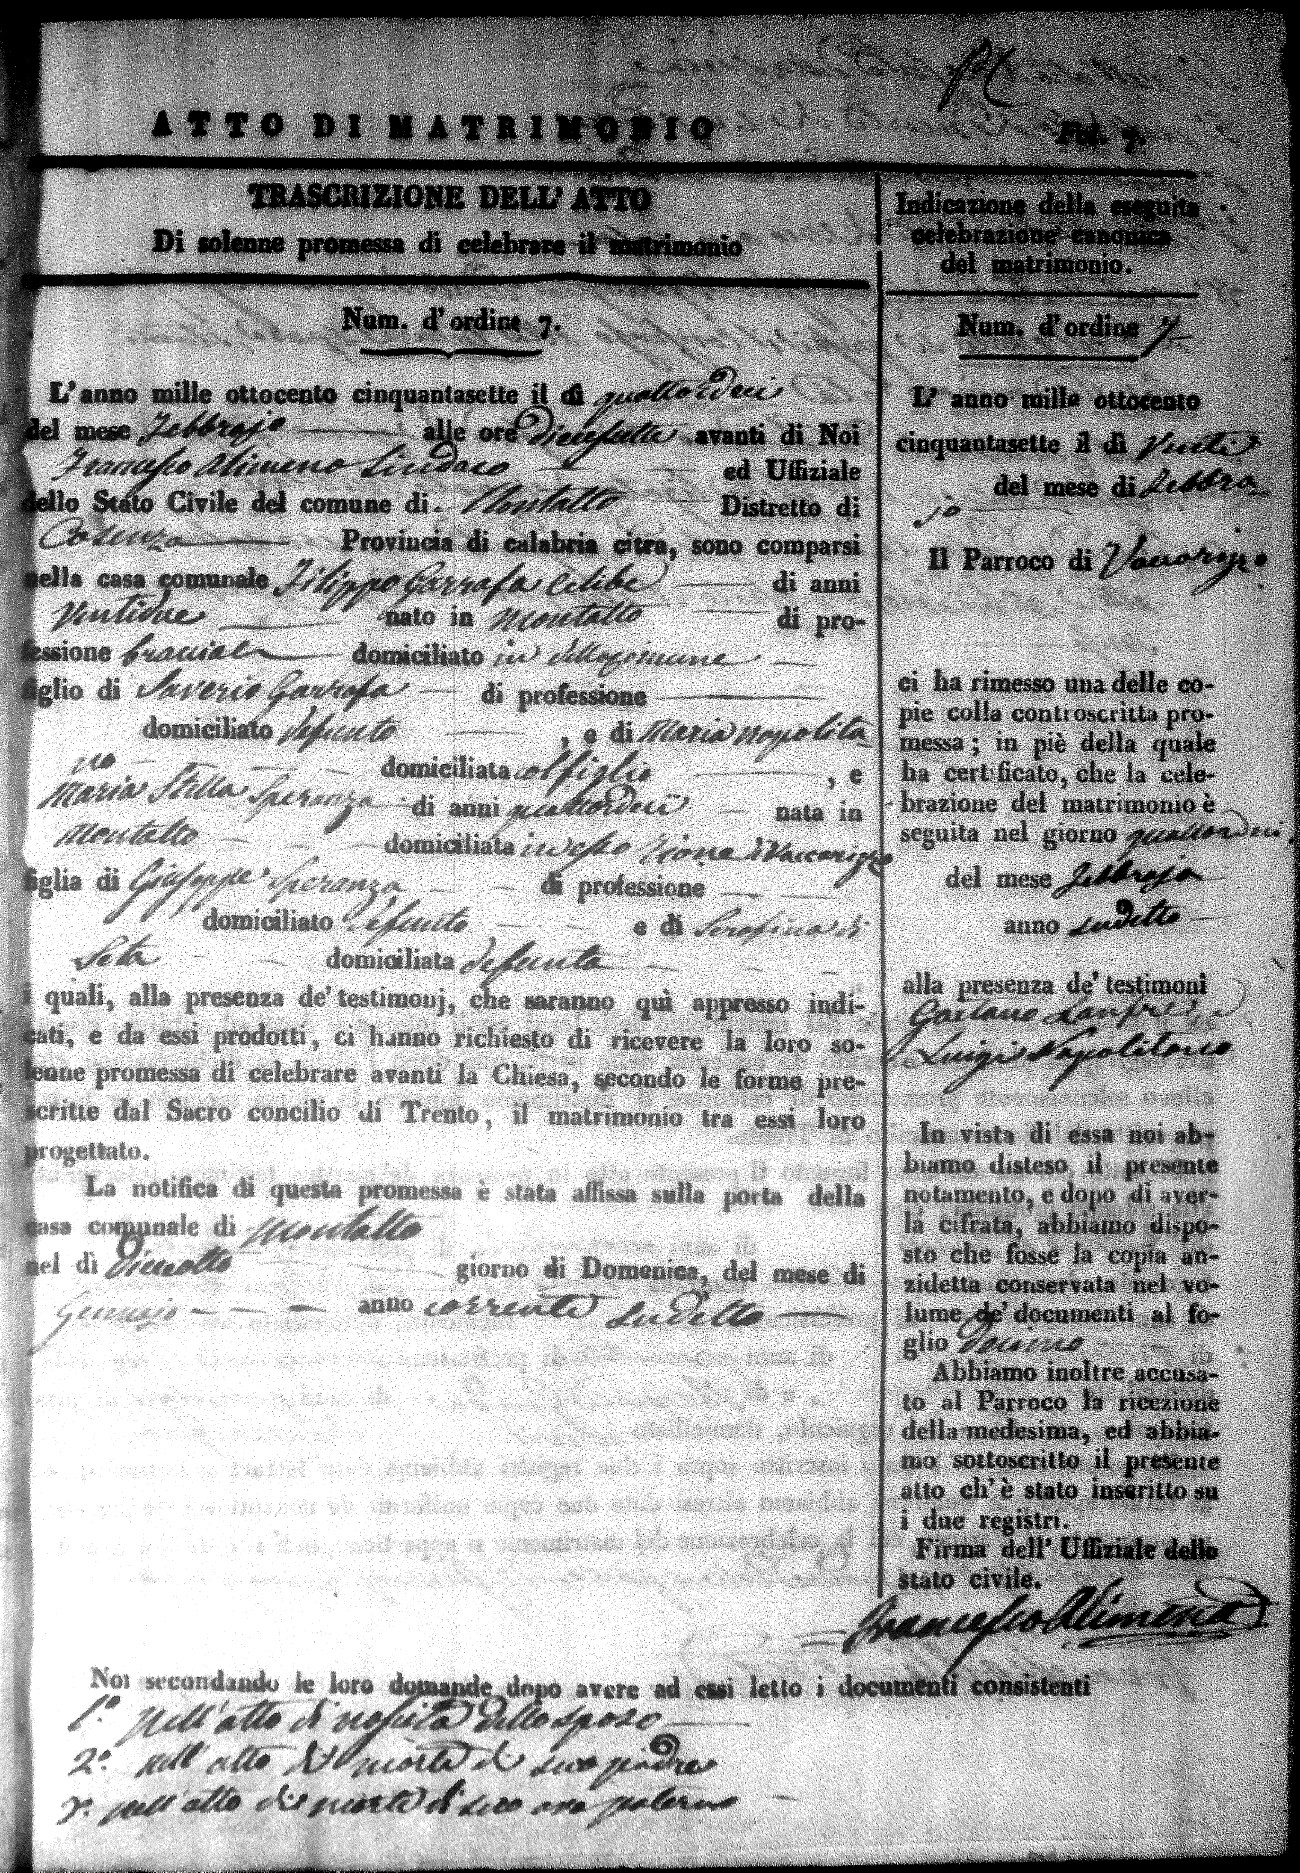 ATTO DI MATRIMONIO
Fol. 7.
TRASCRIZIONE DELL' ATTO
Di solenne promessa di celebrare il matrimonio
Num. d' ordine 7.
L' anno mille ottocento cinquantasette il dì quattordici
del mese Febbrajo alle ore diecisette avanti di Noi
Francesco Alimena Sindaco ed Uffiziale
dello Stato Civile del comune di Montalto Distretto di
Cosenza Provincia di calabria citra, sono comparsi
nella casa comunale Filippo Garrafa celibe di anni
ventidue nato in Montalto di pro-
fessione bracciale domiciliato in detto comune
figlio di Saverio Garrafa di professione
domiciliato defunto , e di Maria Napolita
no domiciliata col figlio , e
Maria Stella Speranza di anni quattordici nata in
Montalto domiciliata in esso Rione di Vaccarizzo
figlia di Giuseppe Speranza di professione
domiciliato defunto e di Serafina di
Seta domiciliata defunta
i quali, alla presenza de' testimonj, che saranno quì appresso indi-
cati, e da essi prodotti, ci hanno richiesto di ricevere la loro so-
lenne promessa di celebrare avanti la Chiesa, secondo le forme pre-
scritte dal Sacro concilio di Trento, il matrimonio tra essi loro
progettato.
La notifica di questa promessa è stata affissa sulla porta della
casa comunale di Montalto
nel dì dieciotto giorno di Domenica, del mese di
Gennajo anno corrente sudetto
Indicazione della eseguita
celebrazione canonica
del matrimonio.
Num. d' ordine 7
L' anno mille ottocento
cinquantasette il dì venti
del mese di Febbra
jo
Il Parroco di Vaccarizzo
ci ha rimesso una delle co-
pie colla controscritta pro-
messa; in piè della quale
ha certificato, che la cele-
brazione del matrimonio è
seguita nel giorno quattordici
del mese Febbrajo
anno sudetto
alla presenza de' testimoni
Gaetano Lanfré, e
Luigi Napolitano
In vista di essa noi ab-
biamo disteso il presente
notamento, e dopo di aver-
la cifrata, abbiamo dispo-
sto che fosse la copia an-
zidetta conservata nel vo-
lume de' documenti al fo-
glio decimo
Abbiamo inoltre accusa-
to al Parroco la ricezione
della medesima, ed abbia-
mo sottoscritto il presente
atto ch' è stato inscritto su
i due registri.
Firma dell' Uffiziale dello
stato civile.
Francesco Alimena
Noi secondando le loro domande dopo avere ad essi letto i documenti consistenti
1.° Nell' atto di nascita dello sposo
2.° nell' atto di morte di suo padre
3.° nell' atto di morte di suo avo paterno